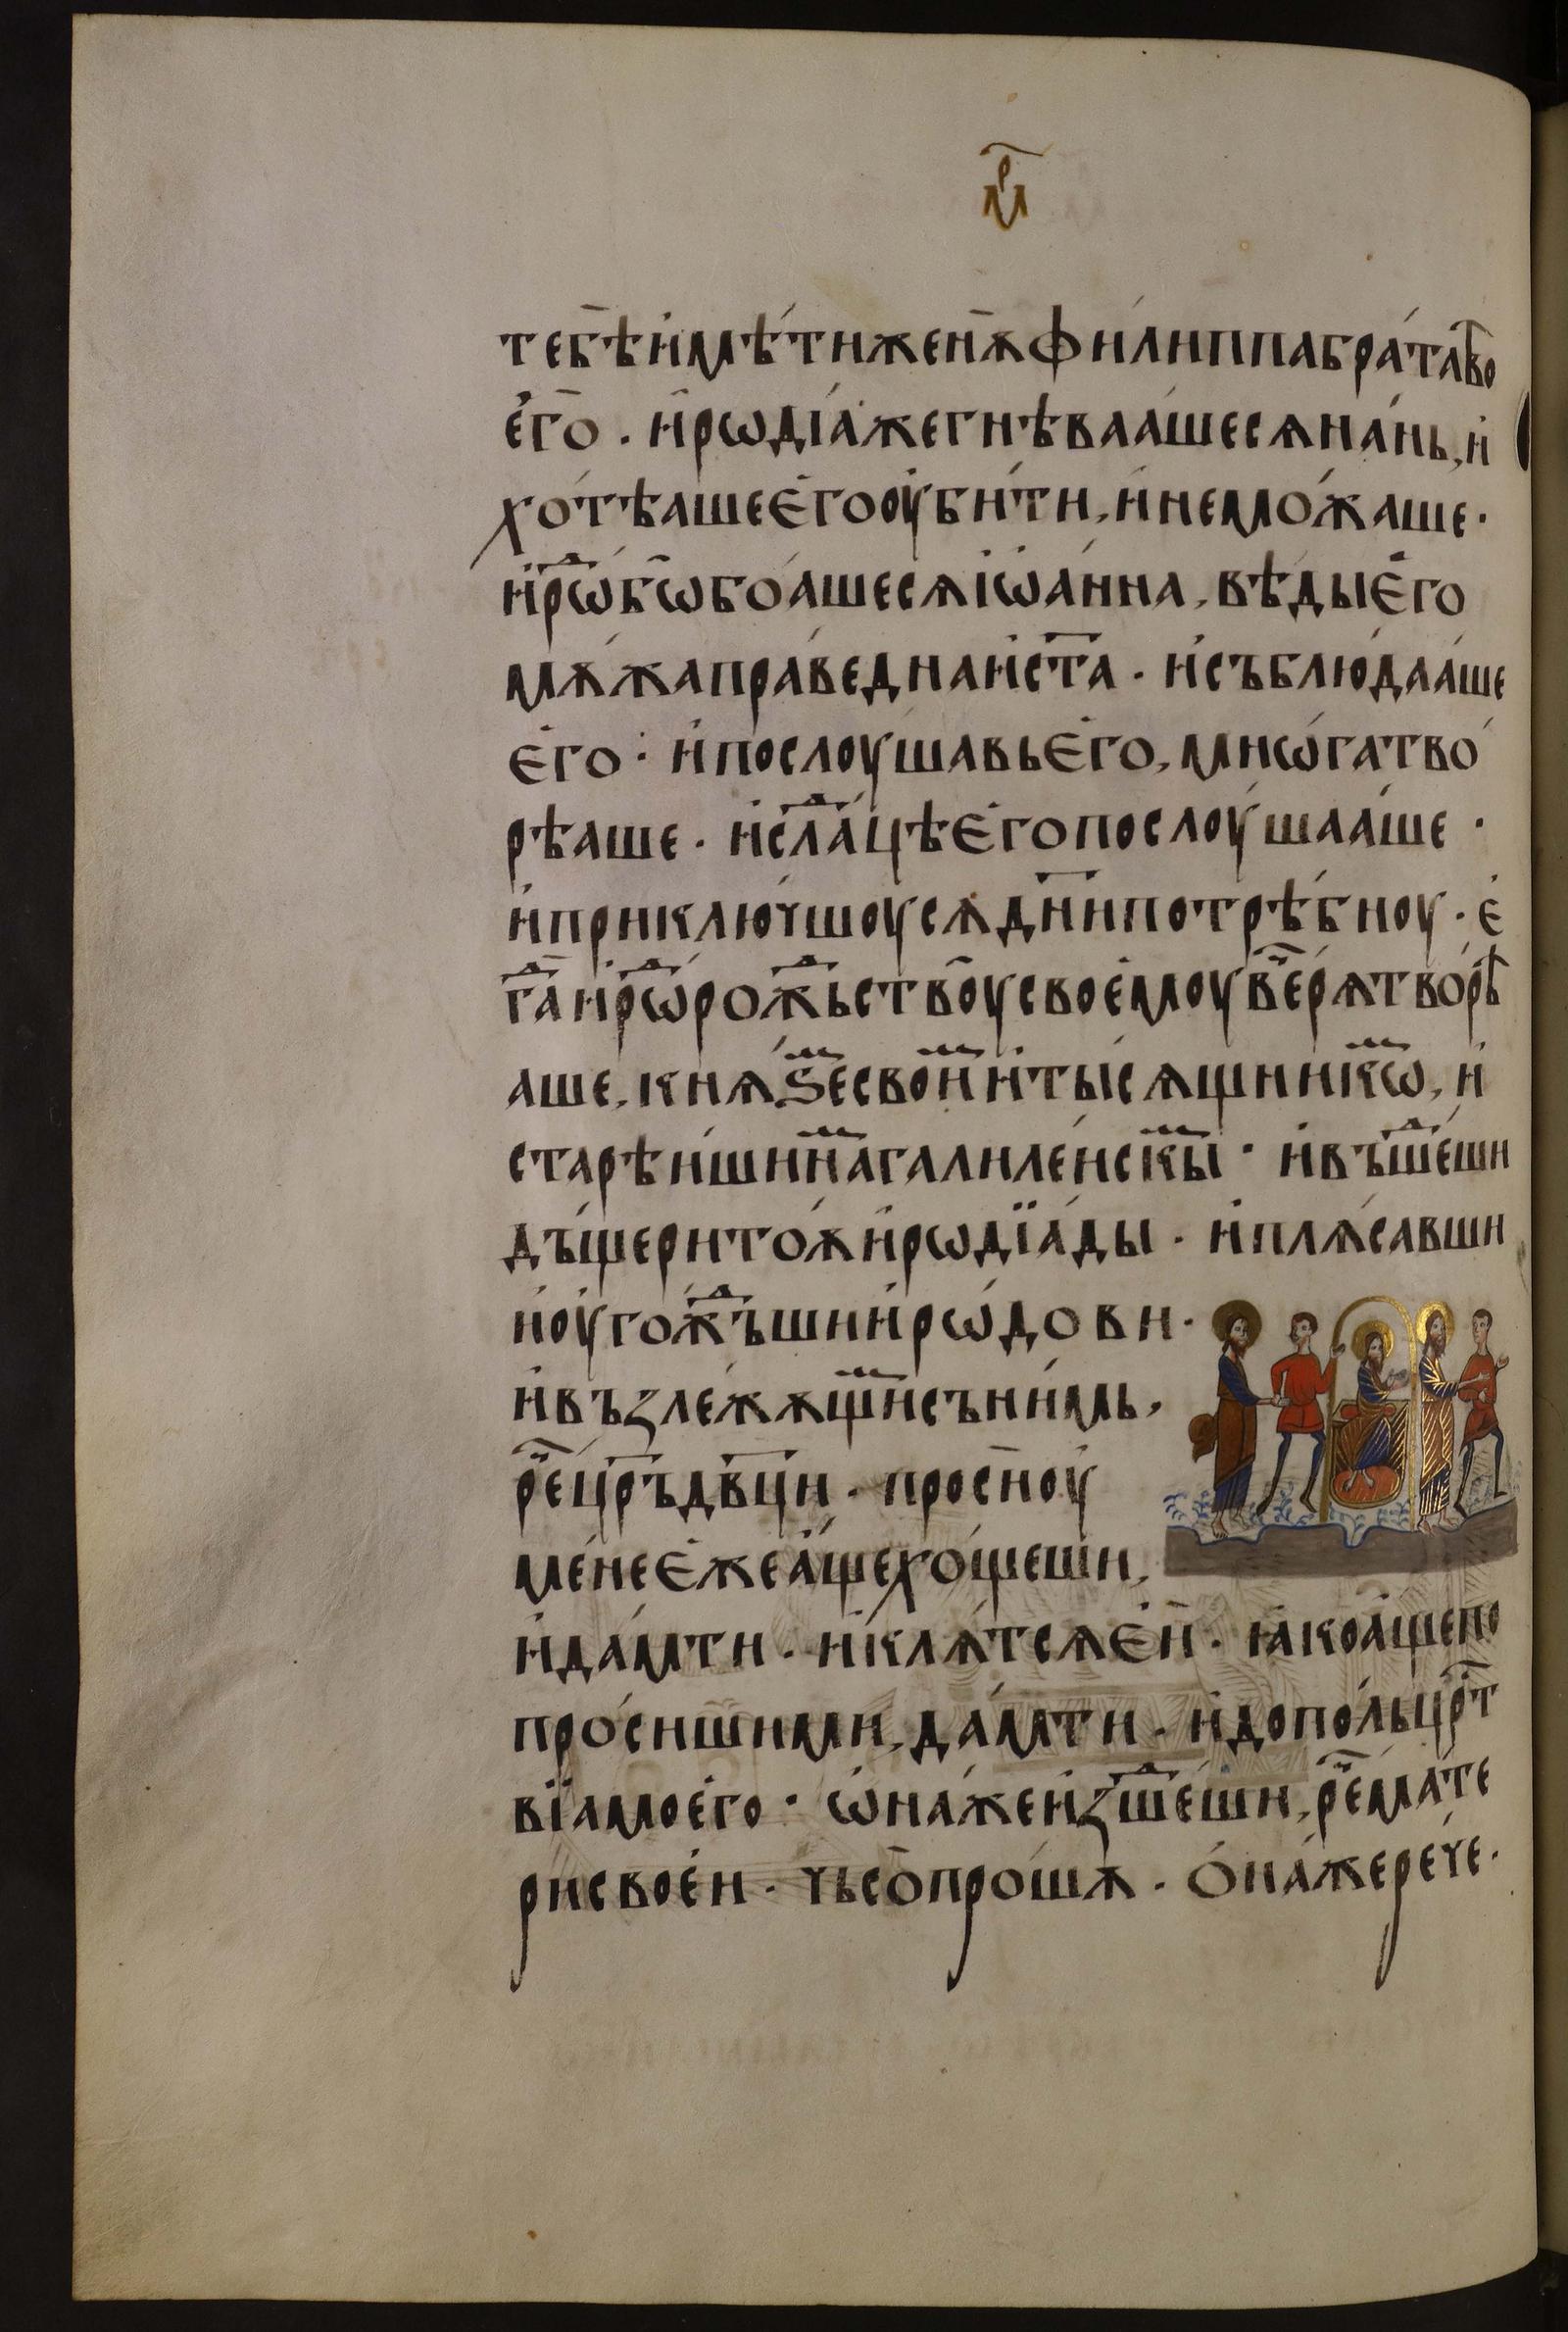 мр҃
тебѣ имѣ́ти женѫ̀ фи́липпа бра́та тво
его̀. и҆рѡдїа́ же гнѣваа́ше сѧ на́нь, и҆
хо́тѣаше є҆го оу҆би́ти, и҆ не мо́жаше.
и҆рѡⷣ бѡ̀ боа́ше сѧ і҆ѡа́нна, вѣ́ды є҆го
мѫ́жа пра́ведна и҆ ст҃а. и҆ съблю́даа́ше
є҆го: и҆ послоу́шавь є҆го, мнѡ́га тво́
рѣаше. и҆ слаⷣцѣ є҆го послоу́шаа́ше.
и҆ приклю́чшоу сѧ дн҃и потрѣ́бноу. є҆
гаⷣ и҆рѡⷣ рожⷣьствоу̀ своемоу̀ веⷱ҇рѧ тво́рѣ
аше, кнѧ́ѕеⷨ свои́ⷨ и҆ ты́сѧщникѡⷨ, и҆
старѣи́шинаⷨ галиле́искыⷨ. и҆ въшеⷣши
дъ́щери тоѫ̀ и҆рѡдїа́ды. и҆ плѧса́вши
и҆ оу҆гожⷣъши и҆рѡ́дови.
и҆ възле́жѧщиⷨ и҆ съ ни́мь,
реⷱ҇ цр҃ъ дв҃ци. просѝ оу҆
ме́не є҆же а҆́ще хо́щеши,
и҆ да́мти. и҆ клѧ́тсѧ є҆ѝ. ꙗ҆ко а҆́ще по
про́сиши ми, да́мти. и҆ до по́льцр҃т
вїа моего̀. ѡ҆на́же и҆зшеⷣши, реⷱ҇ ма́те
ри свое́и. чьсо̀ прошѫ̀. ѻ҆на́же рече́.